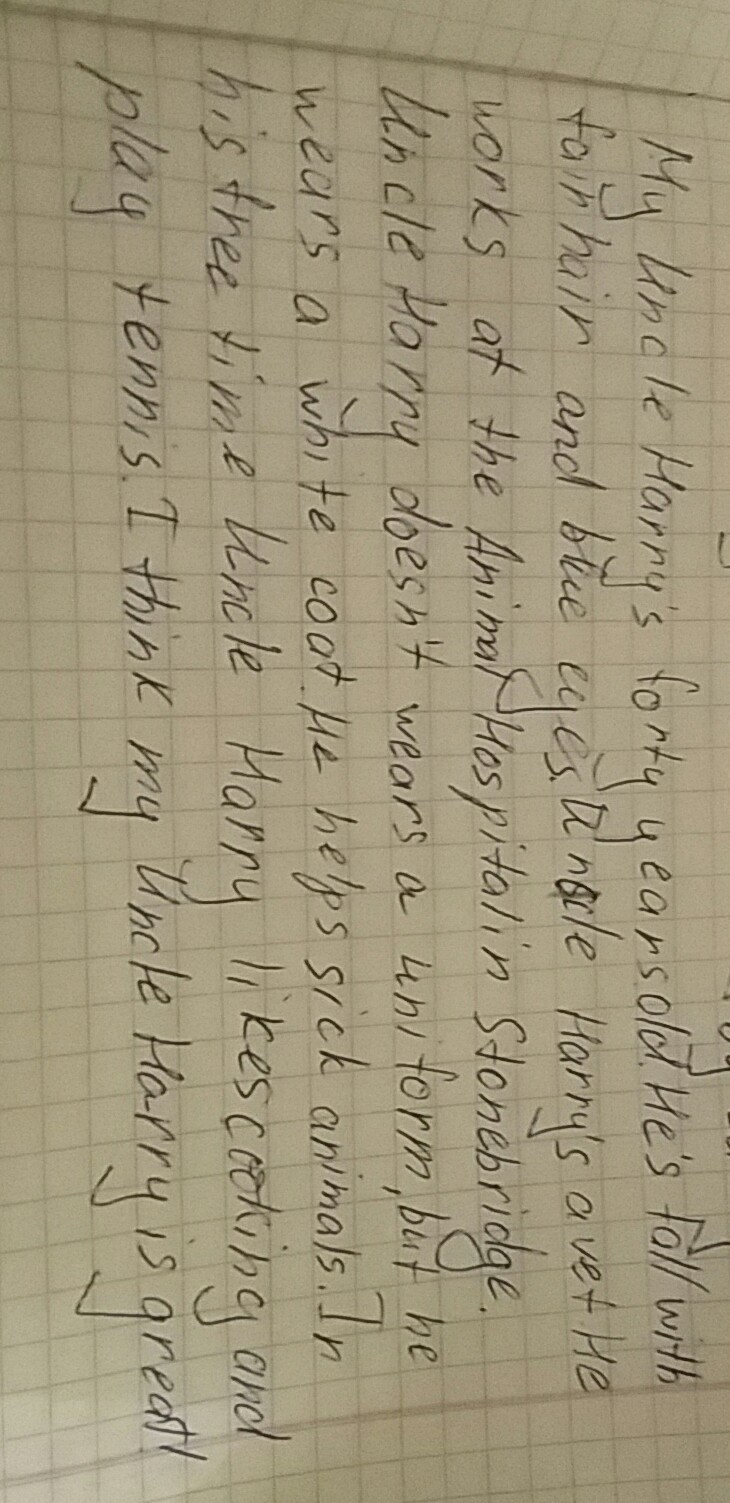 My Uncle Harry's forty years old. He's tall with
fair hair and blue eyes. Uncle Harry's a vet He
works at the Animal Hospital in Stonebridge.
Uncle Harry doesn't wears a uniform, but he
wears a white coat. He helps sick animals. In
his free time Uncle Harry likes cooking and
play tennis. I think my Uncle Harry is great!